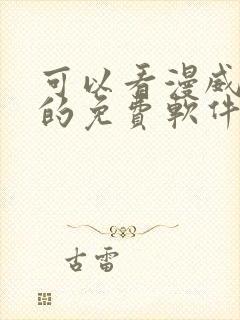 可以看漫威
的免費軟件
古雷